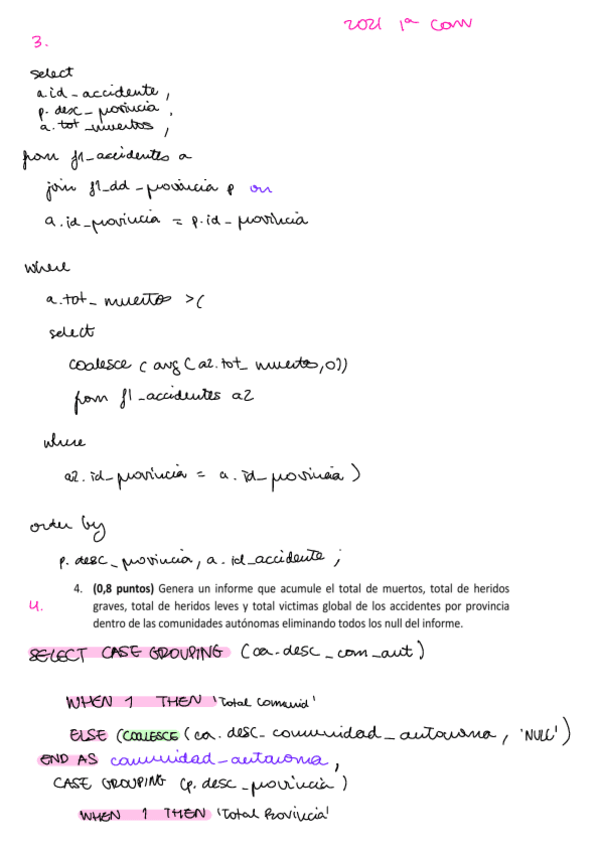 2021 1ª Conv
3.
select
a.id_accidente,
p.desc_provincia,
a.tot_muertos,
from f1_accidentes a
join f1_dd_provincia p on
a.id_provincia = p.id_provincia
where
a.tot_muertos >(
select
coalesce (avg(a2.tot_muertos,0))
from f1_accidentes a2
where
a2.id_provincia = a.id_provincia)
order by
p.desc_provincia, a.id_accidente;
4. (0,8 puntos) Genera un informe que acumule el total de muertos, total de heridos
graves, total de heridos leves y total victimas global de los accidentes por provincia
dentro de las comunidades autónomas eliminando todos los null del informe.
4.
SELECT CASE GROUPING (ca.desc_com_aut)
WHEN 1 THEN 'Total Comunid'
ELSE (COALESCE (ca.desc_comunidad_autonoma, 'NULL')
END AS comunidad_autonoma,
CASE GROUPING (p.desc_provincia)
WHEN 1 THEN 'Total Provincia'